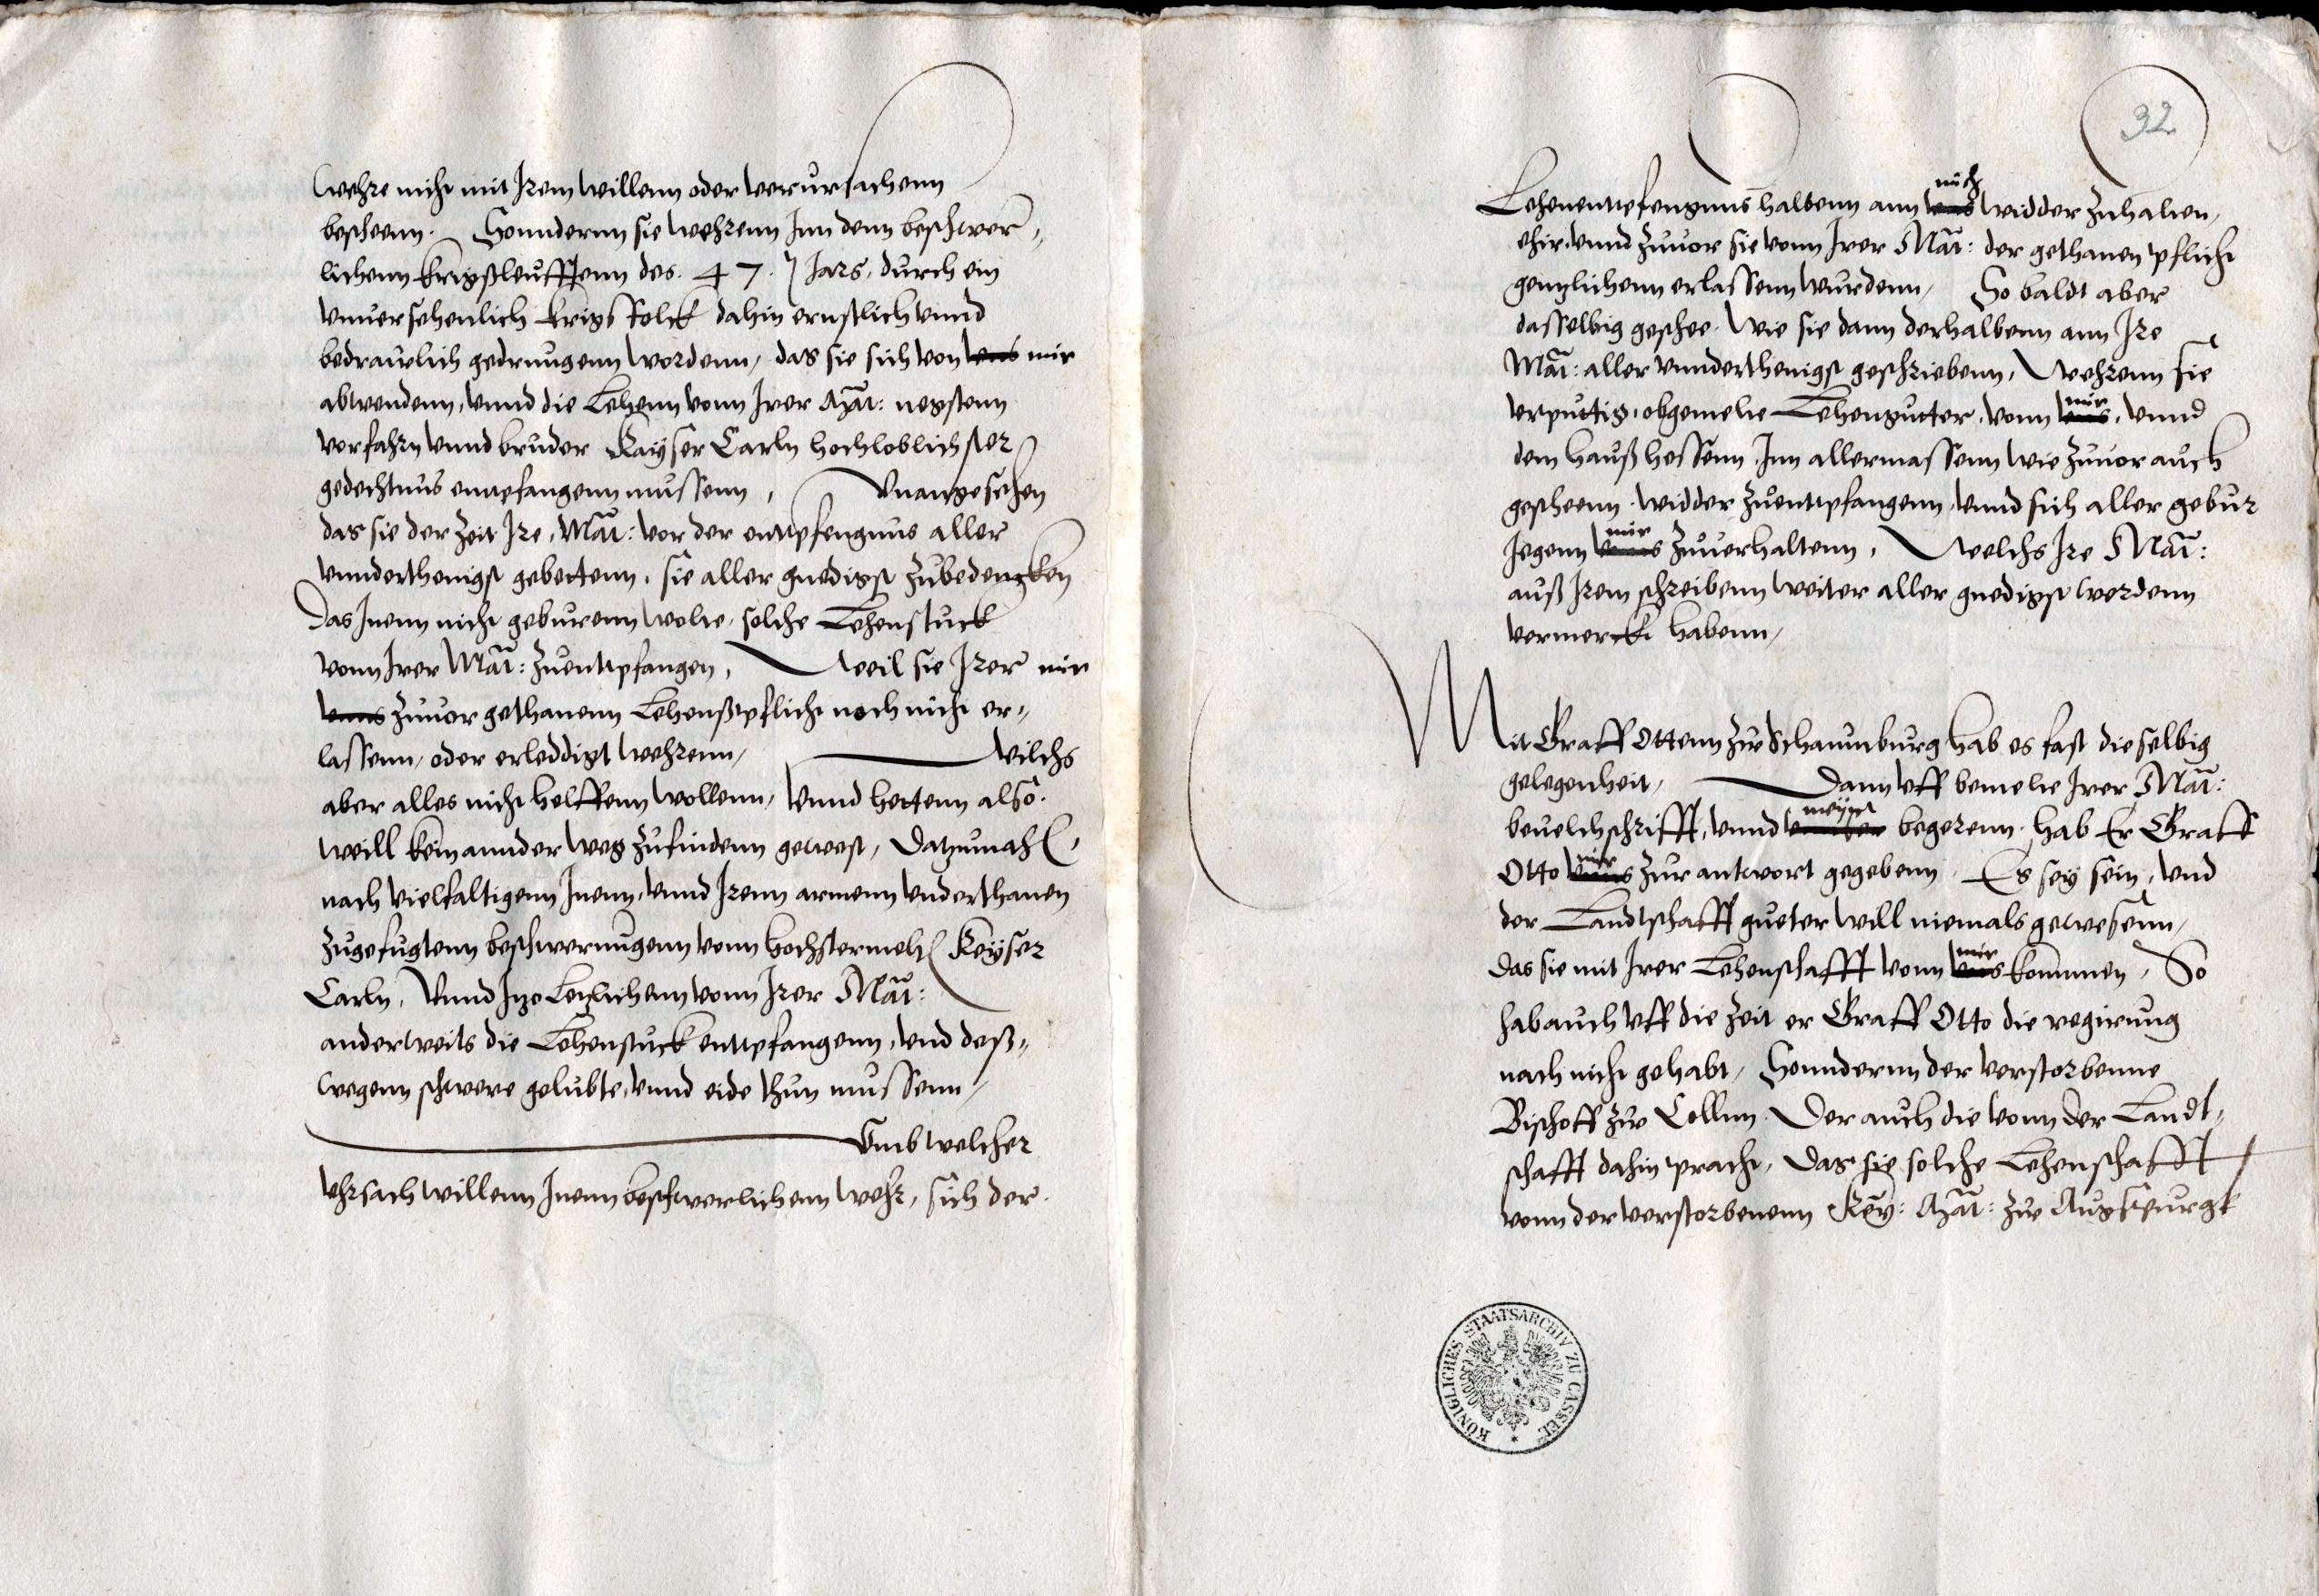 wehre nicht mit Irem willenn oder verursachenn
bescheenn. Sonndernn sie wehrenn Inn denn beschwer„
lichenn krigßleufftenn des. 47. Jars, durch ein
vnuersehenlich krigsvolck dahin ernstlich vnnd
bedraulich gedrungenn wordenn, das sie sich von vns mir
abwendenn, vnnd die Lehenn vonn Irer Mat: negstenn
vorfahrn vnnd bruder Kayser Carln hochloblichster
gedechtnus entpfangenn mussenn, Vnangesehen
das sie der Zeit Ire, Mat: vor der entpfengnus aller
vnnderthenigst gebettenn, sie aller gnedigst zubedencken
Das Inenn nicht geburenn wolte, solche Lehenstuck
vonn Irer Mat: zuentpfangen, Weil sie Irer mir
vnns zuuor gethanenn Lehenßpflicht noch nicht er„
lassenn, oder erleddigt wehrenn, Wilchs
aber alles nicht helffenn wollenn, Vnnd hettenn also.
weill kein annder weg zufindenn gewest, Datzumahl,
nach vielfaltigenn Inenn, vnnd Irenn armenn vnderthanen
zugefugtenn beschwerungenn vonn hochstermelt Keyser
Carln, Vnnd Itzo Letzlichenn vonn Irer Mat:
anderweits die Lehenstuck entpfangenn, vnd deß„
wegenn schwere gelubte, vnnd eide thun mussenn,
Vmb welcher
vhrsach willenn Inenn beschwerlichenn wehr, sich der.
32
mich
Lehenentpfengnus halbenn ann vns widder zuhalten,
ehir, vnnd zuuor sie vonn Irer Mat: der gethanen pflicht
gentzlichenn erlassenn wurdenn, So baldt aber
dasselbig geschee. Wie sie dann derhalbenn ann Ire
Mat: aller vnnderthenigst geschriebenn, Wehrenn sie
mir
vrputtig, obgemelte Lehengutter, vonn vns, vnnd
dem hauß hessenn, Inn allermassenn wie zuuor auch
gescheenn, widder zuentpfangenn, vnnd sich aller gebur
mir
Jegenn vnns zuuerhaltenn, Welchs Ire Mat:
auß Irem schreibenn weiter aller gnedigst werdenn
vermerckt habenn,
Mit Graff Ottenn zur Schaumburg hab es fast dieselbig
gelegenheit, Dann vff bemelte Irer Mat:
meyn
beuelchschrifft, vnnd vnnser begerenn, hab Er Graff
mir
Otto vnns zur antwort gegebenn, Es sey sein, vnd
der Landtschafft gueter will niemals gewesenn,
mir
das sie mit Irer Lehenschafft vonn vns kommen, So
hab auch vff die Zeit er Graff Otto die regirung
nach nicht gehabt, Sonndernn der verstorbenne
Bischoff zu Collnn. Der auch die vonn der Landt„
schafft dahin pracht, das sie solche Lehenschafft
vonn der verstorbenenn Key: Mat: zu Augspurgk
KÖNIGLICHES STAATSARCHIV ZU CASSEL